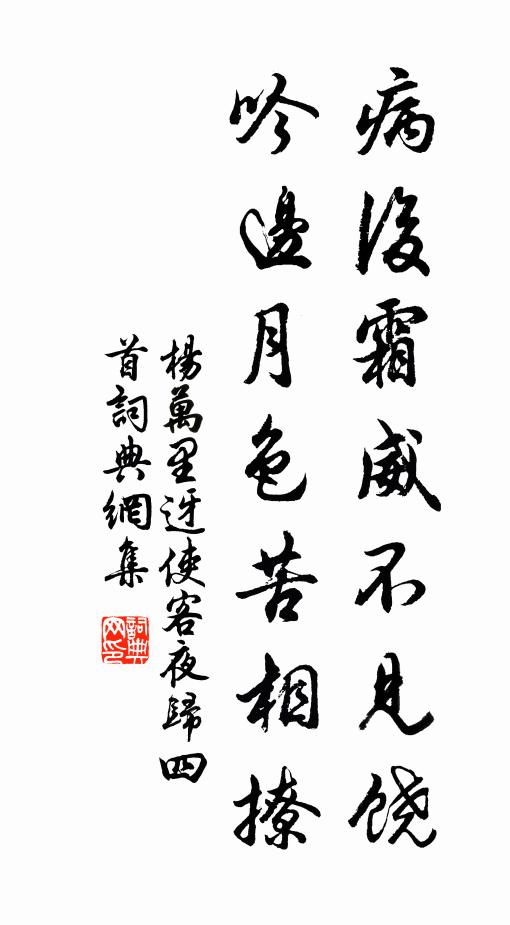 病後霜威不見饒
吟邊月色苦相撩
楊萬里迓使客夜歸四
首詞典網集
詞典网印